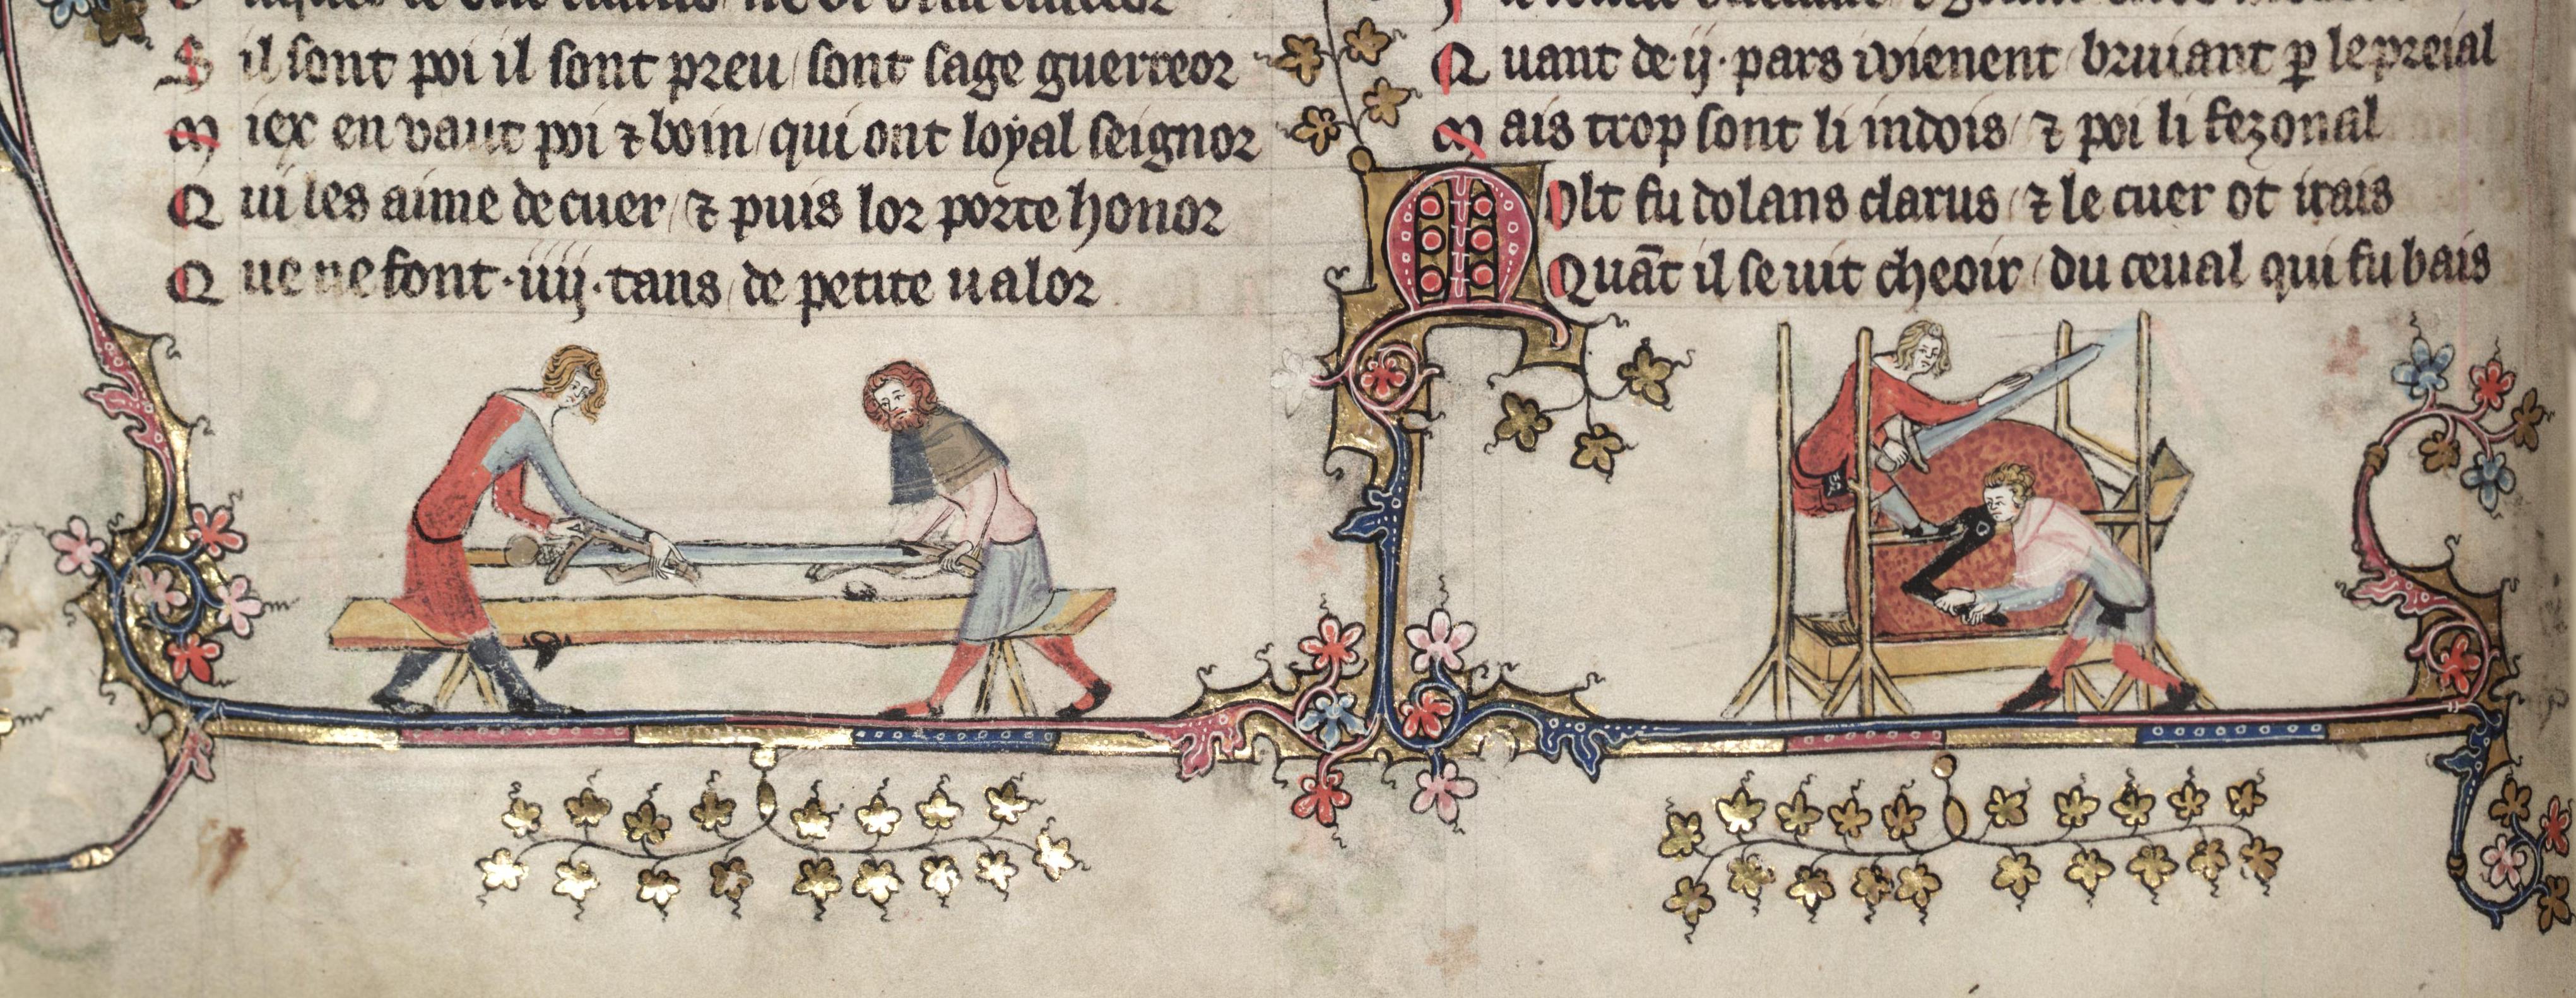 S il sont poi il sont preu / sont sage guerreor
M iex en vaut poi ⁊ boin / qui ont loyal seignor
Q ui les aime de cuer / ⁊ puis lor porte honor
Q ue ne font .iiij. tans / de petite ualor
Q uant de .ij. pars i vienent / bruiant ꝑ le preial
M ais trop sont li indois / ⁊ poi li fezonal
M olt fu dolans clarus / ⁊ le cuer ot irais
Quāt il se uit cheoir / du ceual qui fu bais